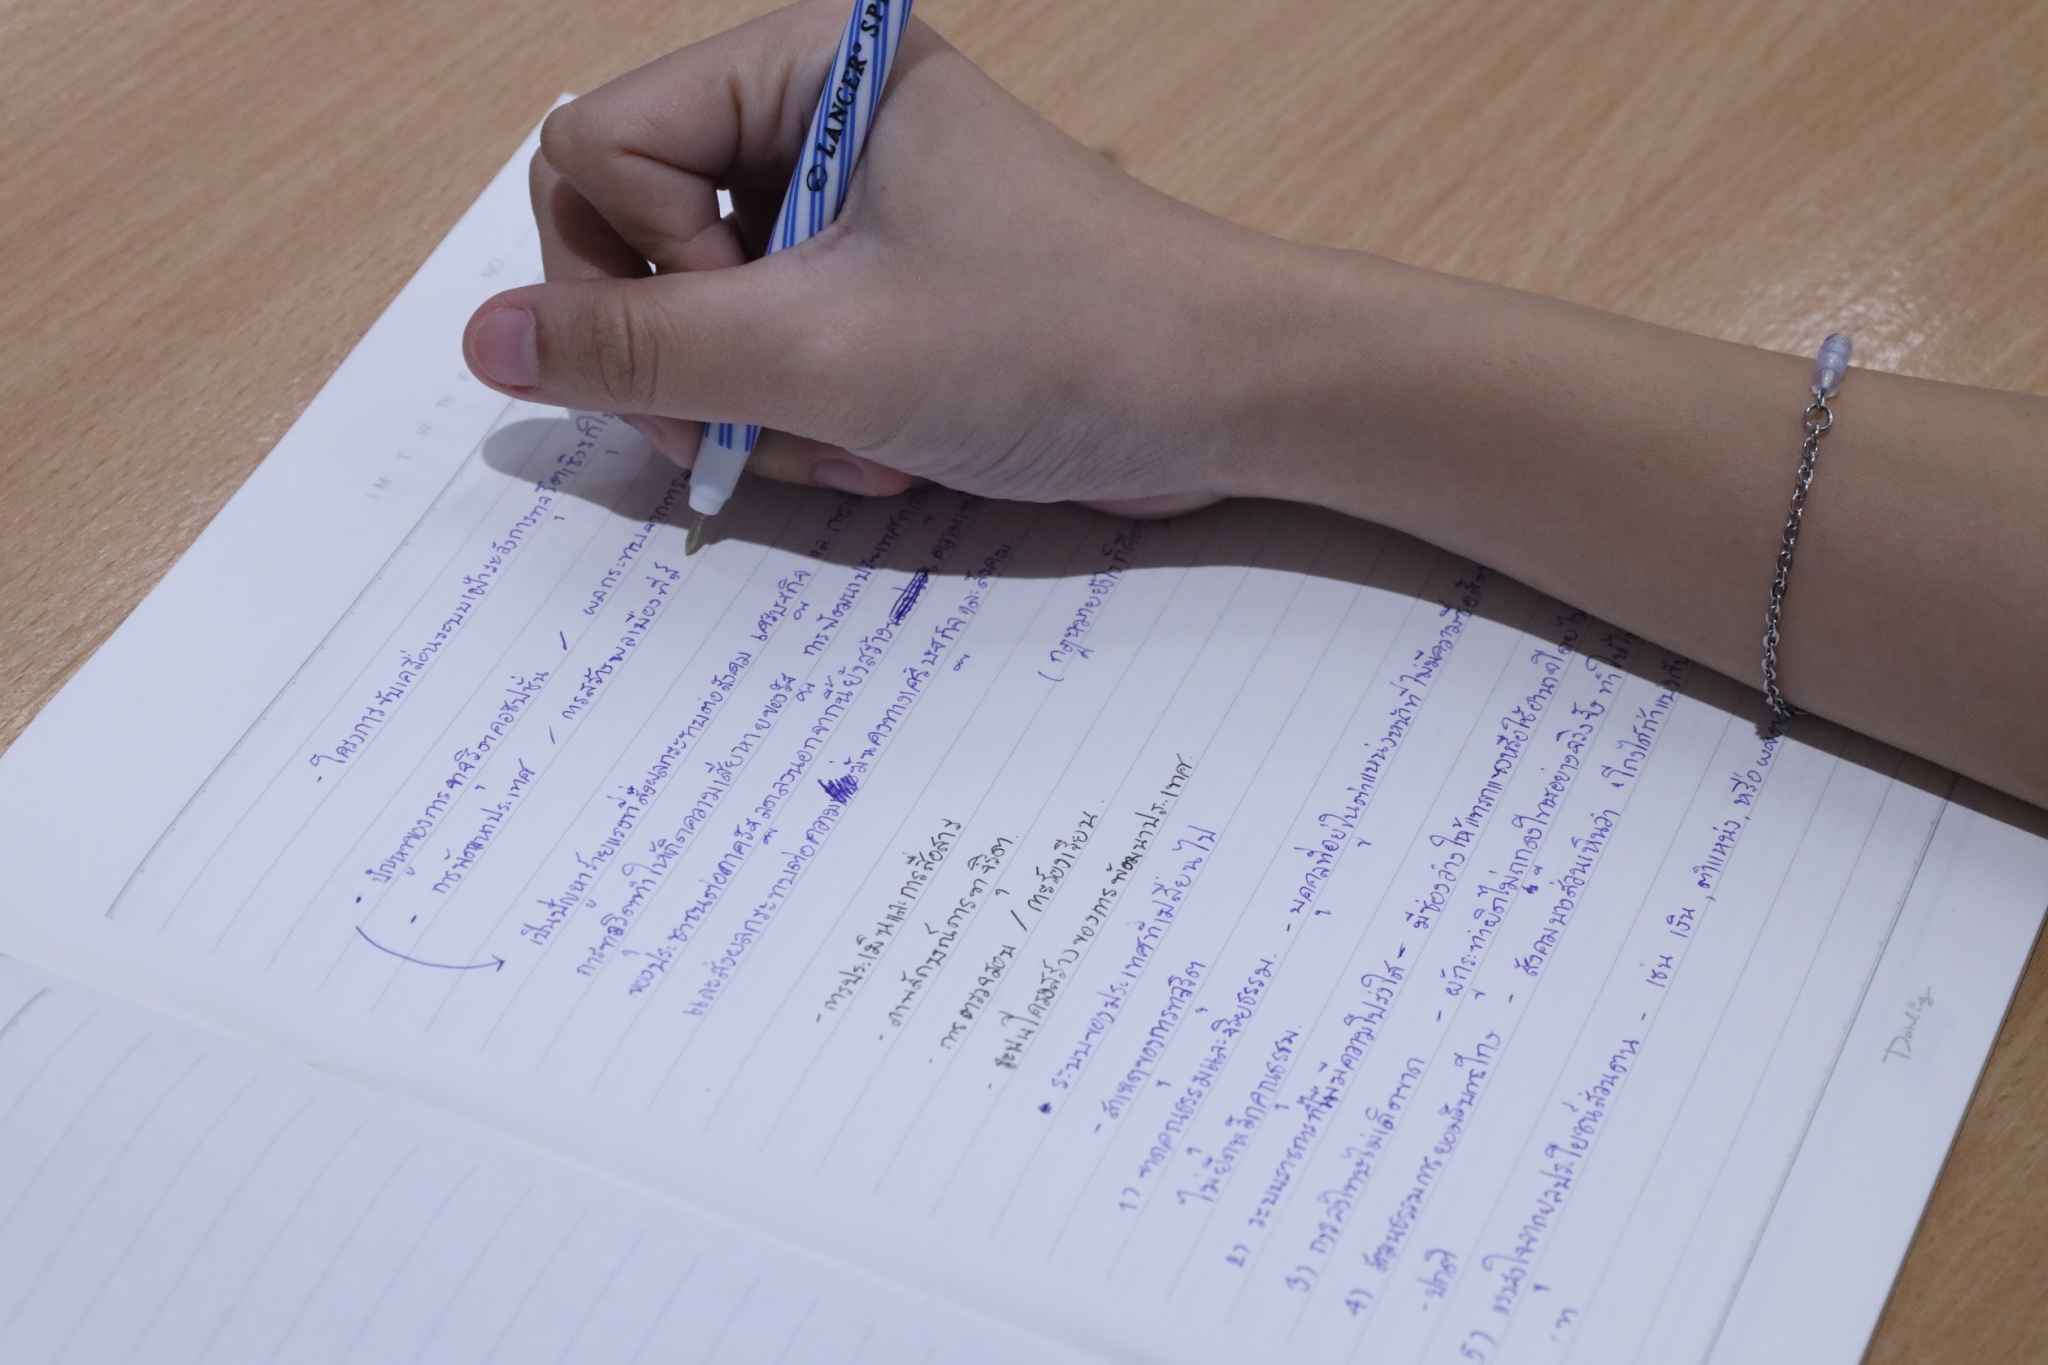 LANCER SP
NO.
M T W Th
- โครงการขับเคลื่อนระบบเฝ้าระวังการทุจริตเชิงรุกใ
• ปัญหาของการทุจริตคอรัปชั่น / ผลกระทบจากการ
- การพัฒนาประเทศ / การสร้างพลเมืองที่รู้
เป็นปัญหาร้ายแรงที่ส่งผลกระทบต่อสังคม เศรษฐกิจ และการ
การทุจริตทำให้เกิดความเสียหายของรัฐ การพัฒนาประเทศ
ของประชาชนต่อภาครัฐลดลง นอกจากนี้ยังสร้าง
และส่งผลกระทบต่อความมั่นคงทางเศรษฐกิจและสังคม
(กฎหมายยังไงก็
- การประเมินและการสื่อสาร
- การตรวจสอบ / การร้องเรียน.
- ระบบโครงสร้างของการพัฒนาประเทศ.
• ระบบของประเทศที่เปลี่ยนไป
- สาเหตุของการทุจริต
1) ขาดคุณธรรมและจริยธรรม. - บุคคลที่อยู่ในตำแหน่งหน้าที่ไม่มีความซื่อสัต
ไม่ยึดหลักคุณธรรม.
2) ระบบราชการที่ไม่มีความโปร่งใส - มีช่องว่างให้แทรกแซงหรือใช้อำนาจโดยไ
3) การลงโทษไม่เด็ดขาด - ผู้กระทำผิดไม่ถูกลงโทษอย่างจริงจัง ทำให้
4) วัฒนธรรมการยอมรับการโกง - สังคมบางส่วนเห็นว่า โกงได้ถ้าแบ่งกัน
- ปกติ
5) แรงจูงใจจากผลประโยชน์ส่วนตน - เช่น เงิน, ตำแหน่ง, หรือ